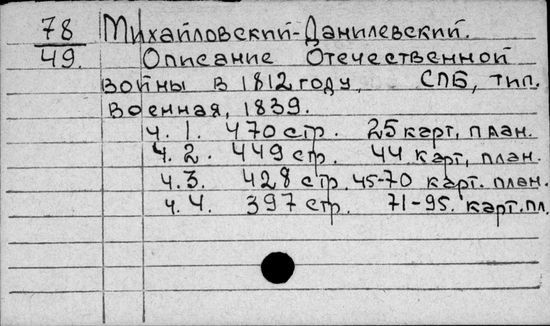 78 Михайловский-Данилевский.
49. Описание Отечественной
войны в 1812 году, СПБ, тип.
Военная, 1839.
ч. 1. 470 стр. 25 карт, план.
ч. 2. 449 стр. 44 карт, план.
ч. 3. 428 стр. 45-70 карт. план.
ч. 4. 397 стр. 71-95. карт. пл.